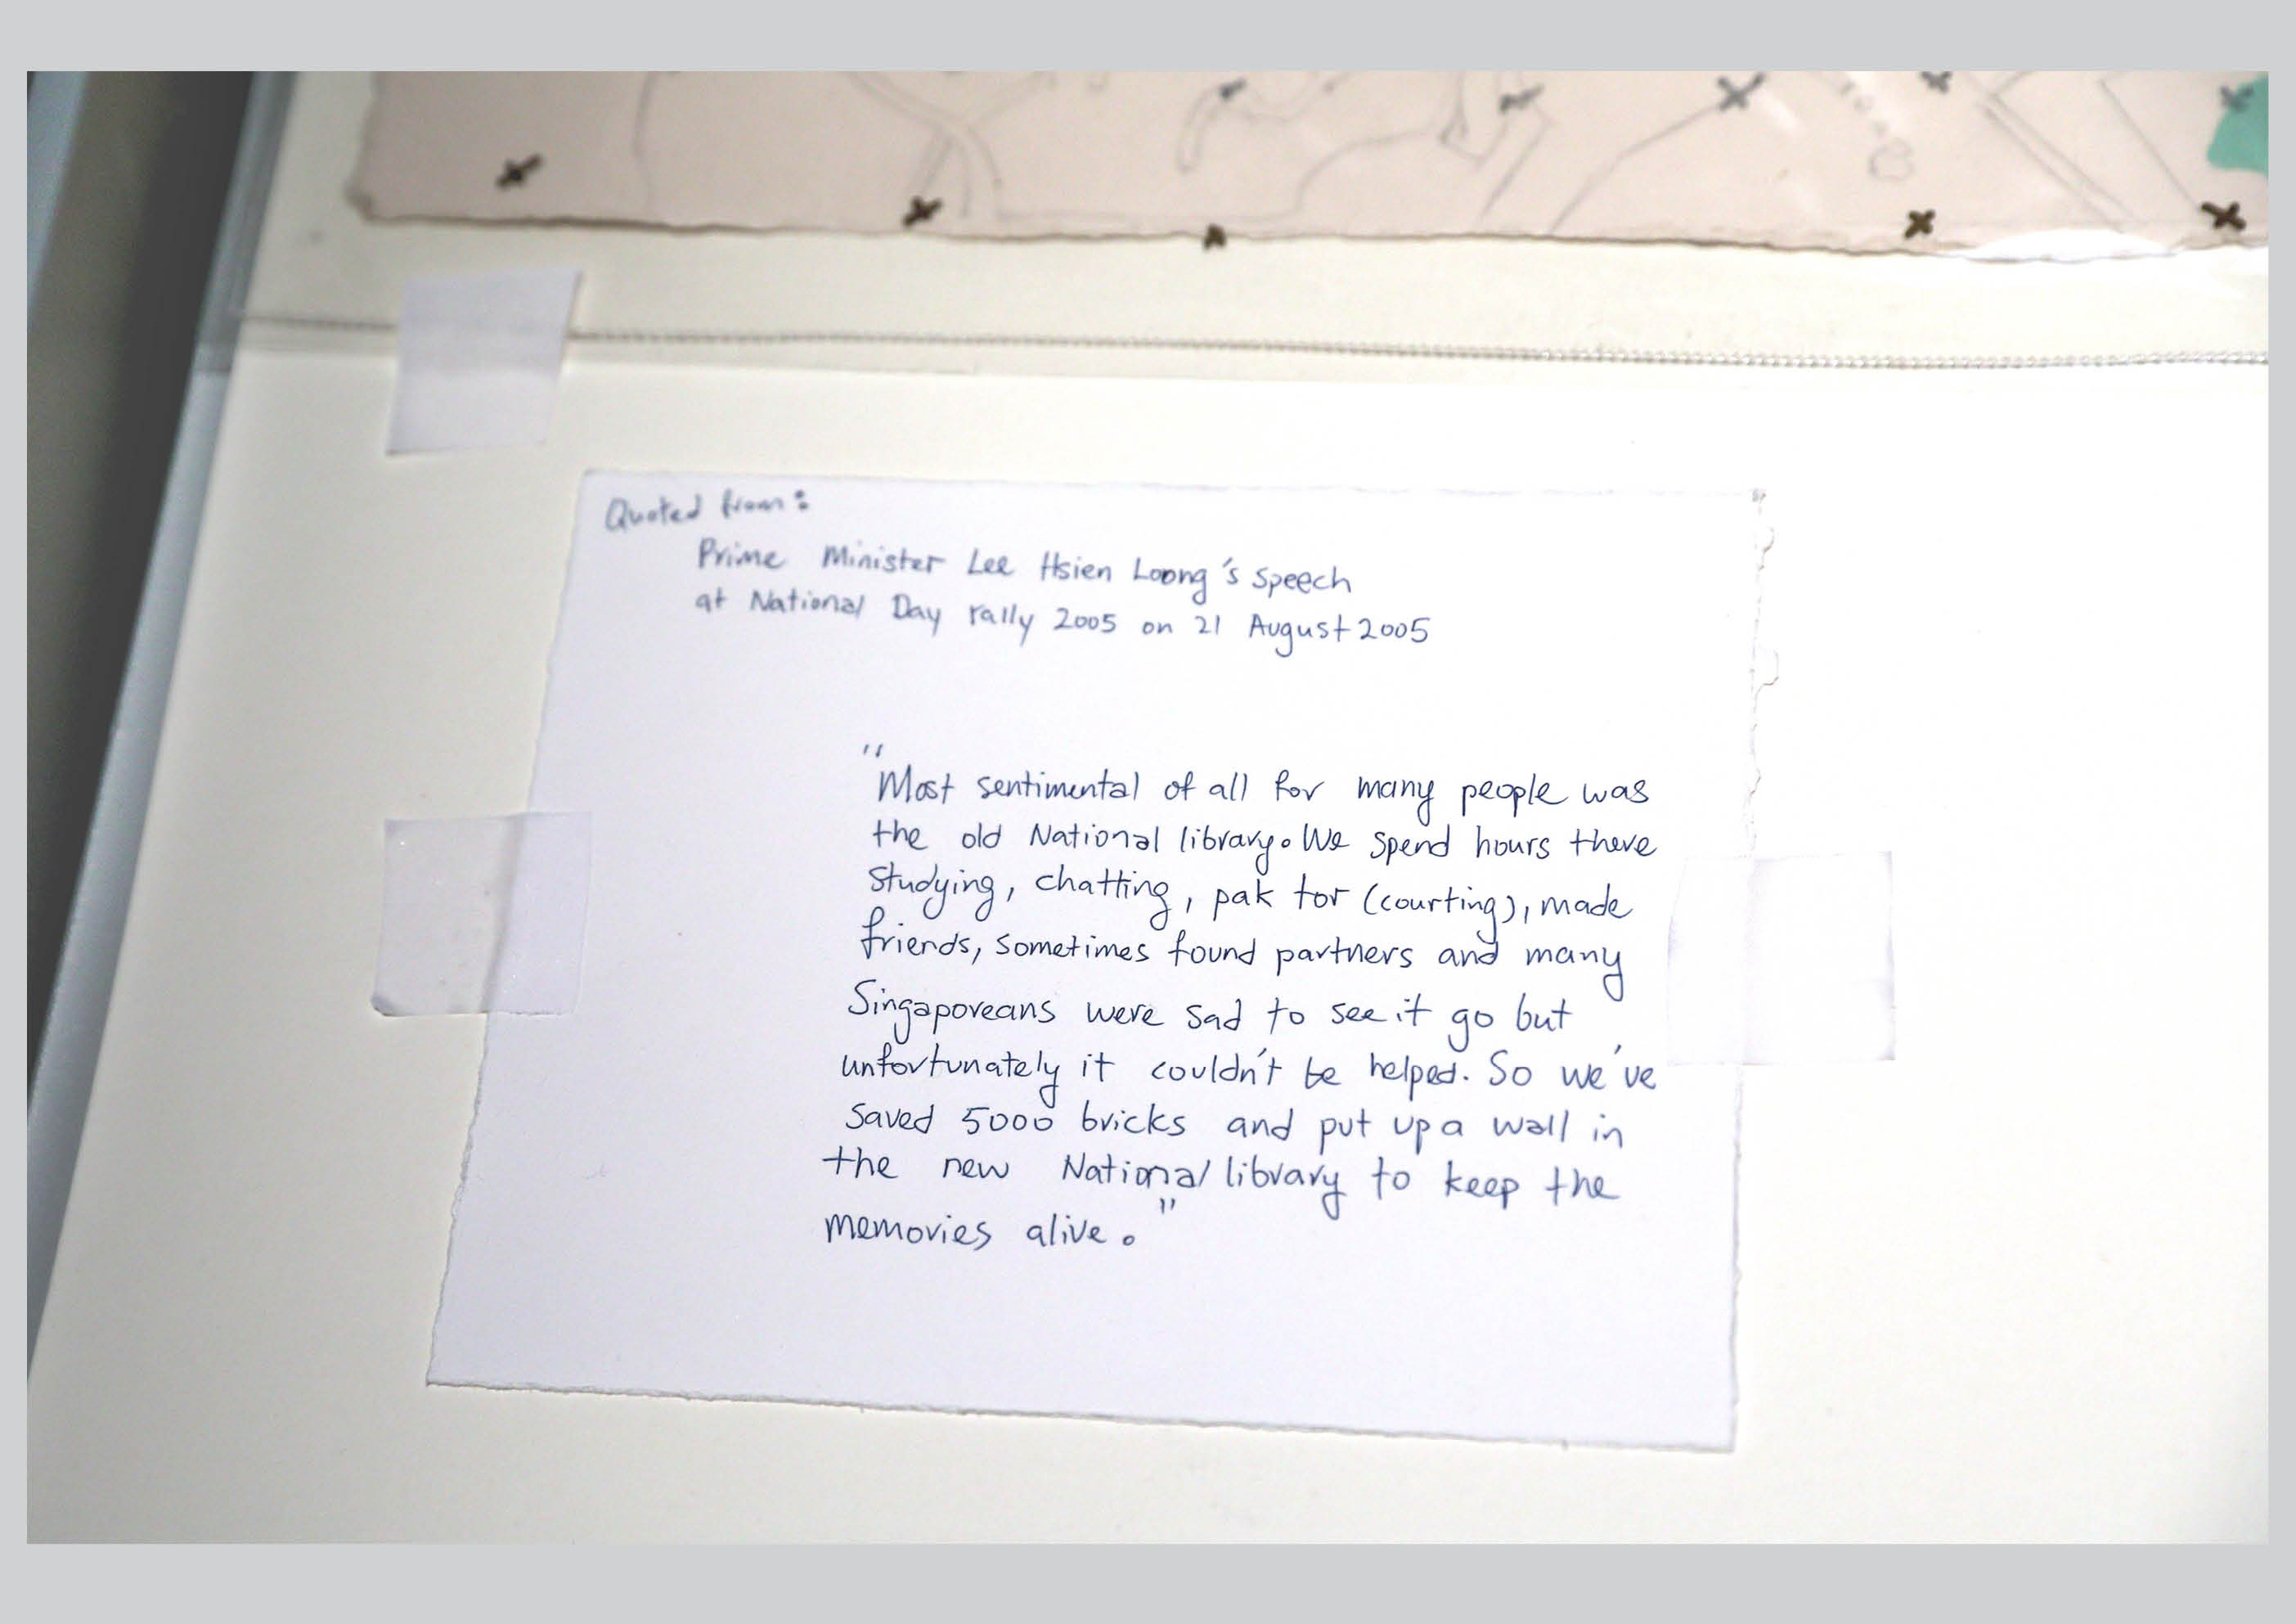 Quoted from:
Prime Minister Lee Hsien Loong's speech
at National Day rally 2005 on 21 August 2005
"Most sentimental of all for many people was
the old National library. We spend hours there
studying, chatting, pak tor (courting), made
friends, sometimes found partners and many
Singaporeans were sad to see it go but
unfortunately it couldn't be helped. So we've
saved 5000 bricks and put up a wall in
the new National library to keep the
memories alive."